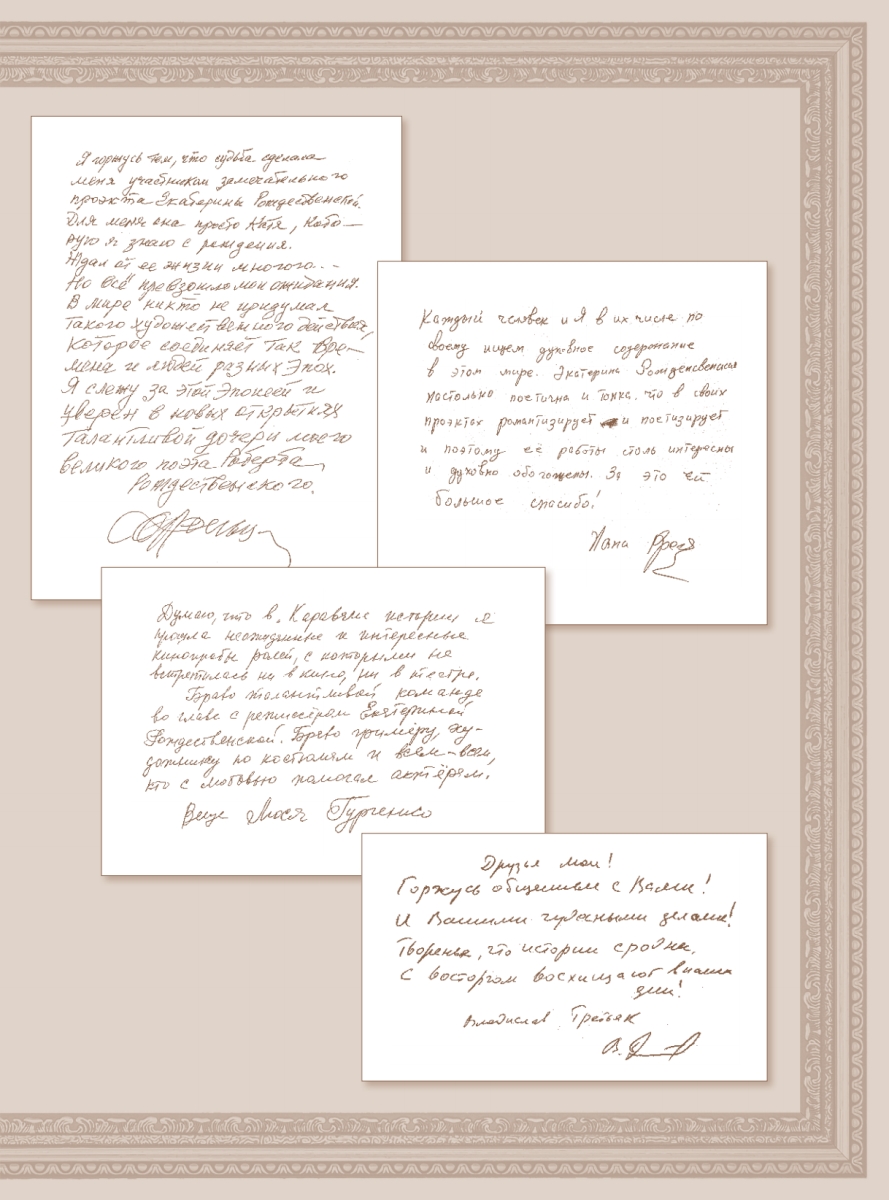 Я горжусь тем, что судьба сделала
меня участником замечательного
проэкта Екатерины Рождественской.
Для меня она просто Катя, кото-
рую я знаю с рождения.
Ждал от ее жизни многого...
Но всё превзошло мои ожидания.
В мире никто не придумал
такого художественного действия,
которое соединяет так вре-
мена и людей разных эпох.
Я слежу за этой эпопеей и
уверен в новых открытиях
талантливой дочери моего
великого поэта Роберта
Рождественского.
Каждый человек и я в их числе по
своему ищем духовное содержание
в этом мире. Екатерина Рождественская
настолько поэтична и тонка, что в своих
проэктах романтизирует и поэтизирует
и поэтому её работы столь интересны
и духовно обогащены. За это ей
большое спасибо!
Думаю, что в "Караван" истории я
прошла неожиданные и интересные
кинопробы ролей, с которыми не
встретилась ни в кино, ни в театре.
Браво талантливой команде
во главе с режиссёром Екатериной
Рождественской. Браво гримёру, ху-
дожнику по костюмам и всем-всем,
кто с любовью помогал актёрам.
Ваша Люся Гурченко
Друзья мои!
Горжусь общением с Вами!
И Вашими чудесными делами!
Творенья, что истории сродни,
С восторгом восхищают в наши
дни!
Владислав Третьяк